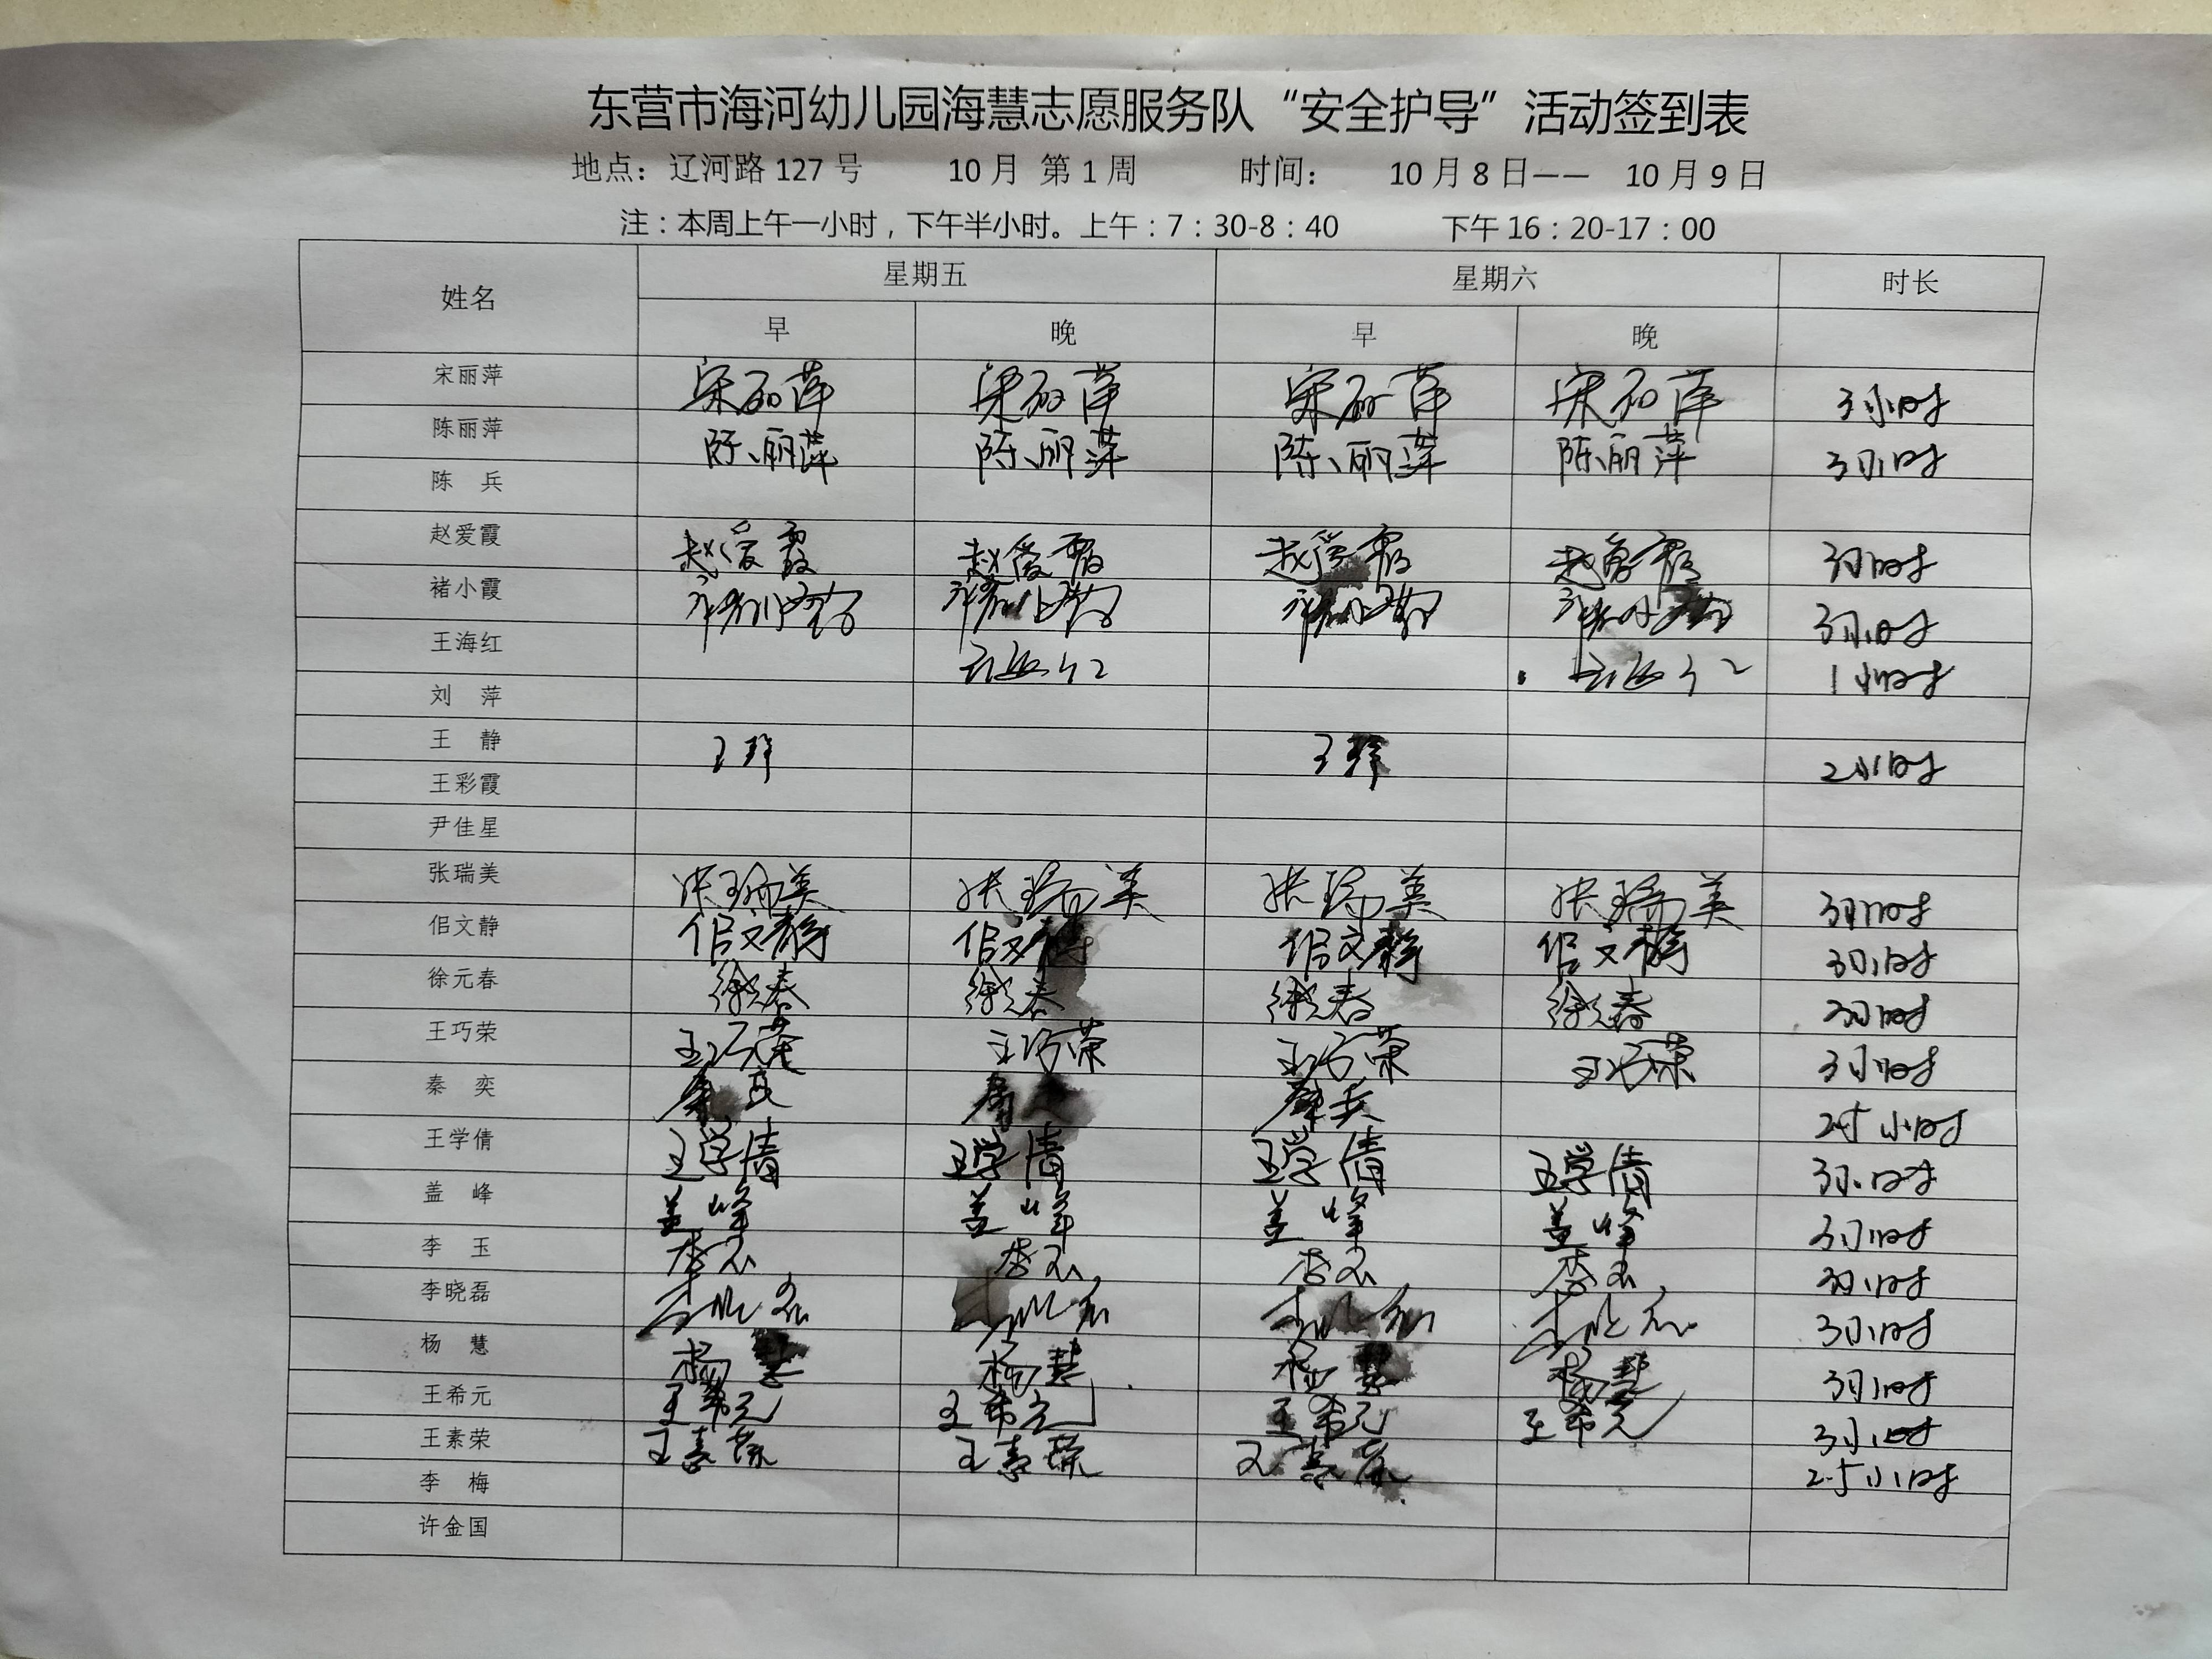 东营市海河幼儿园海慧志愿服务队“安全护导”活动签到表
地点：辽河路 127 号 10 月 第 1 周 时间： 10 月 8 日—— 10 月 9 日
注：本周上午一小时，下午半小时。上午：7：30-8：40 下午 16：20-17：00
姓名 星期五 星期六 时长
早 晚 早 晚
宋丽萍 宋丽萍 宋丽萍 宋丽萍 宋丽萍 3小时
陈丽萍 陈丽萍 陈丽萍 陈丽萍 陈丽萍 3小时
陈 兵
赵爱霞 赵爱霞 赵爱霞 赵爱霞 赵爱霞 3小时
褚小霞 褚小霞 褚小霞 褚小霞 褚小霞 3小时
王海红 王海红 王海红 1小时
刘 萍
王 静 王静 王静 2小时
王彩霞
尹佳星
张瑞美 张瑞美 张瑞美 张瑞美 张瑞美 3小时
佀文静 佀文静 佀文静 佀文静 佀文静 3小时
徐元春 徐元春 徐元春 徐元春 徐元春 3小时
王巧荣 王巧荣 王巧荣 王巧荣 王巧荣 3小时
秦 奕 秦奕 秦奕 秦奕 2.5小时
王学倩 王学倩 王学倩 王学倩 王学倩 3小时
盖 峰 盖峰 盖峰 盖峰 盖峰 3小时
李 玉 李玉 李玉 李玉 李玉 3小时
李晓磊 李晓磊 李晓磊 李晓磊 李晓磊 3小时
杨 慧 杨慧 杨慧 杨慧 杨慧 3小时
王希元 王希元 王希元 王希元 王希元 3小时
王素荣 王素荣 王素荣 王素荣 2.5小时
李 梅
许金国